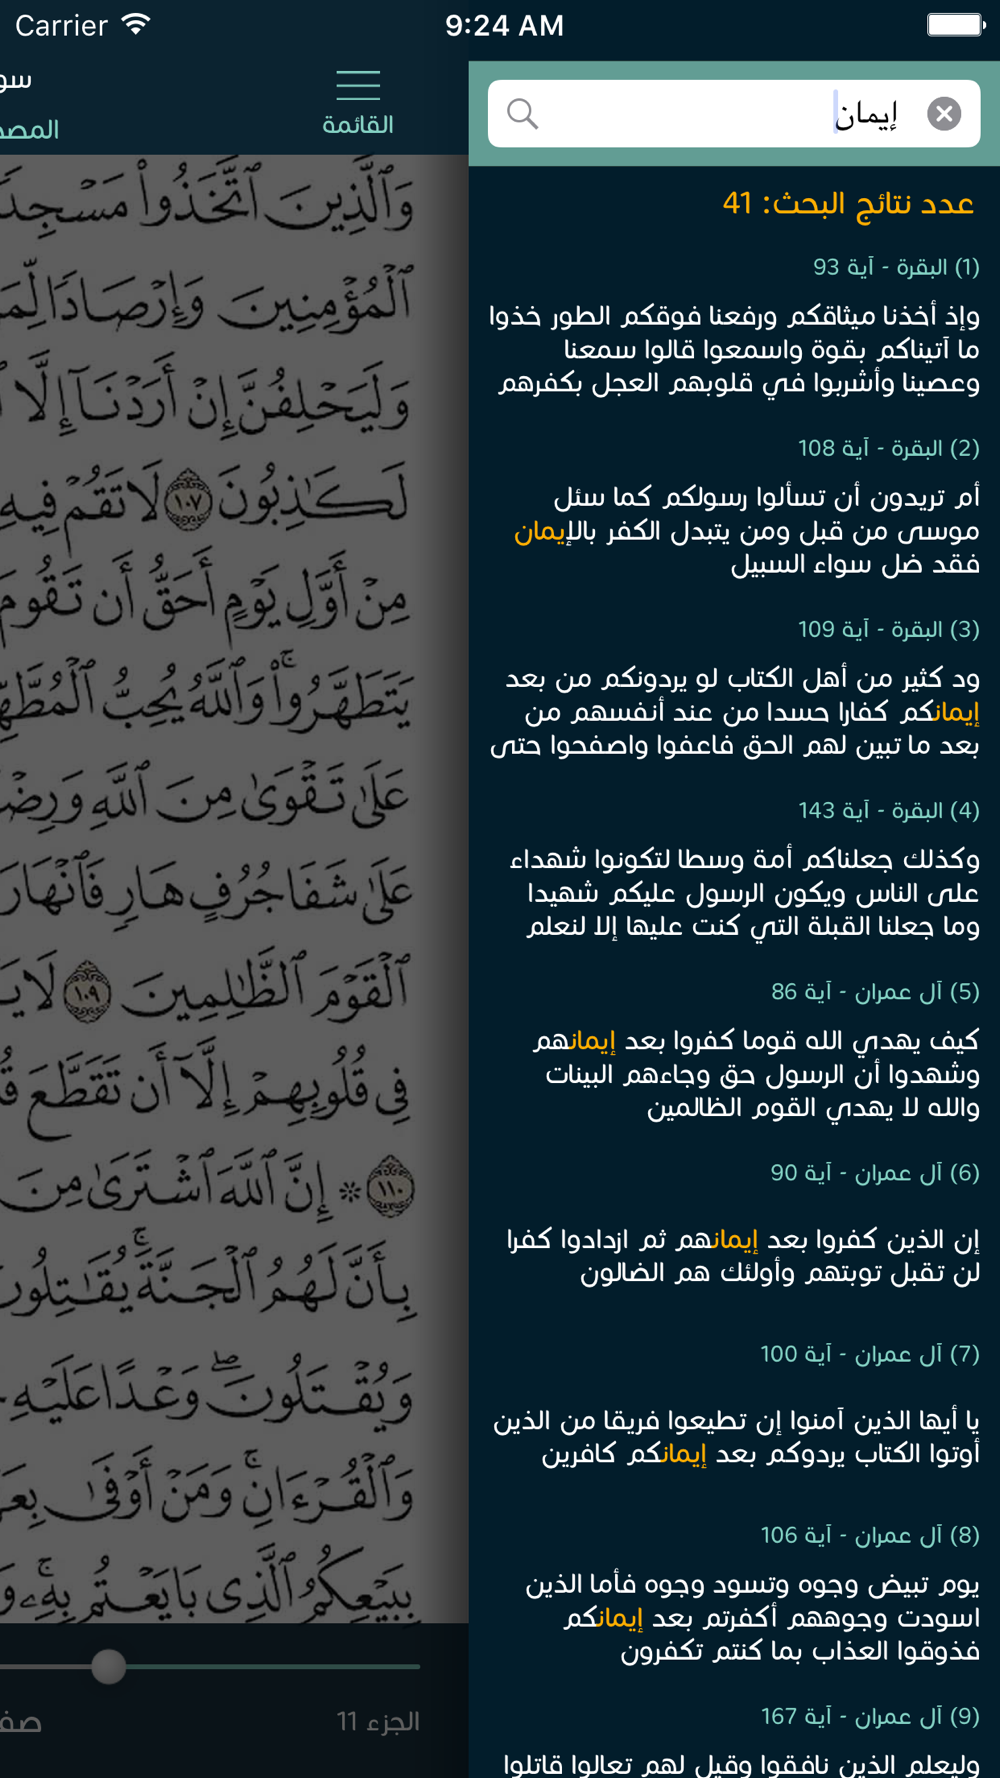 Carrier
9:24 AM
القائمة
إيمان
عدد نتائج البحث: 41
(1) البقرة - آية 93
وإذ أخذنا ميثاقكم ورفعنا فوقكم الطور خذوا
ما آتيناكم بقوة واسمعوا قالوا سمعنا
وعصينا وأشربوا في قلوبهم العجل بكفرهم
(2) البقرة - آية 108
أم تريدون أن تسألوا رسولكم كما سئل
موسى من قبل ومن يتبدل الكفر بالإيمان
فقد ضل سواء السبيل
(3) البقرة - آية 109
ود كثير من أهل الكتاب لو يردونكم من بعد
إيمانكم كفارا حسدا من عند أنفسهم من
بعد ما تبين لهم الحق فاعفوا واصفحوا حتى
(4) البقرة - آية 143
وكذلك جعلناكم أمة وسطا لتكونوا شهداء
على الناس ويكون الرسول عليكم شهيدا
وما جعلنا القبلة التي كنت عليها إلا لنعلم
(5) آل عمران - آية 86
كيف يهدي الله قوما كفروا بعد إيمانهم
وشهدوا أن الرسول حق وجاءهم البينات
والله لا يهدي القوم الظالمين
(6) آل عمران - آية 90
إن الذين كفروا بعد إيمانهم ثم ازدادوا كفرا
لن تقبل توبتهم وأولئك هم الضالون
(7) آل عمران - آية 100
يا أيها الذين آمنوا إن تطيعوا فريقا من الذين
أوتوا الكتاب يردوكم بعد إيمانكم كافرين
(8) آل عمران - آية 106
يوم تبيض وجوه وتسود وجوه فأما الذين
اسودت وجوههم أكفرتم بعد إيمانكم
فذوقوا العذاب بما كنتم تكفرون
(9) آل عمران - آية 167
وليعلم الذين نافقوا وقيل لهم تعالوا قاتلوا
وَٱلَّذِينَ ٱتَّخَذُوا۟ مَسْجِدًا
ٱلْمُؤْمِنِينَ وَإِرْصَادًا
وَلَيَحْلِفُنَّ إِنْ أَرَدْنَآ إِلَّا
لَكَٰذِبُونَ ١٠٧ لَا تَقُمْ فِيهِ
مِنْ أَوَّلِ يَوْمٍ أَحَقُّ أَن تَقُومَ
يَتَطَهَّرُوا۟ ۚ وَٱللَّهُ يُحِبُّ
عَلَىٰ تَقْوَىٰ مِنَ ٱللَّهِ
عَلَىٰ شَفَا جُرُفٍ هَارٍ فَٱنْهَارَ
ٱلْقَوْمَ ٱلظَّٰلِمِينَ ١٠٩
فِى قُلُوبِهِمْ إِلَّآ أَن تَقَطَّعَ
١١٠ ۞ إِنَّ ٱللَّهَ ٱشْتَرَىٰ مِنَ
بِأَنَّ لَهُمُ ٱلْجَنَّةَ ۚ يُقَٰتِلُونَ
وَيُقْتَلُونَ ۖ وَعْدًا عَلَيْهِ
وَٱلْقُرْءَانِ ۚ وَمَنْ أَوْفَىٰ
بِبَيْعِكُمُ ٱلَّذِى بَايَعْتُم بِهِۦ ۚ
الجزء 11